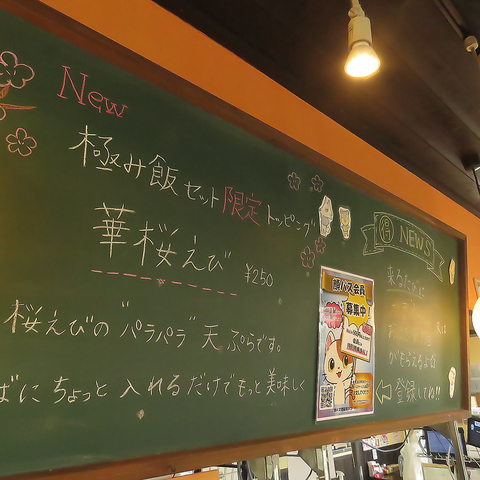 New
極み飯セット限定トッピング
華桜えび ¥250
桜えびの"パラパラ"天ぷらです。
ばにちょっと入れるだけでもっと美味しく
得 NEWS
来るたびに
がもらえるよ
登録してね!!
会員
募集中